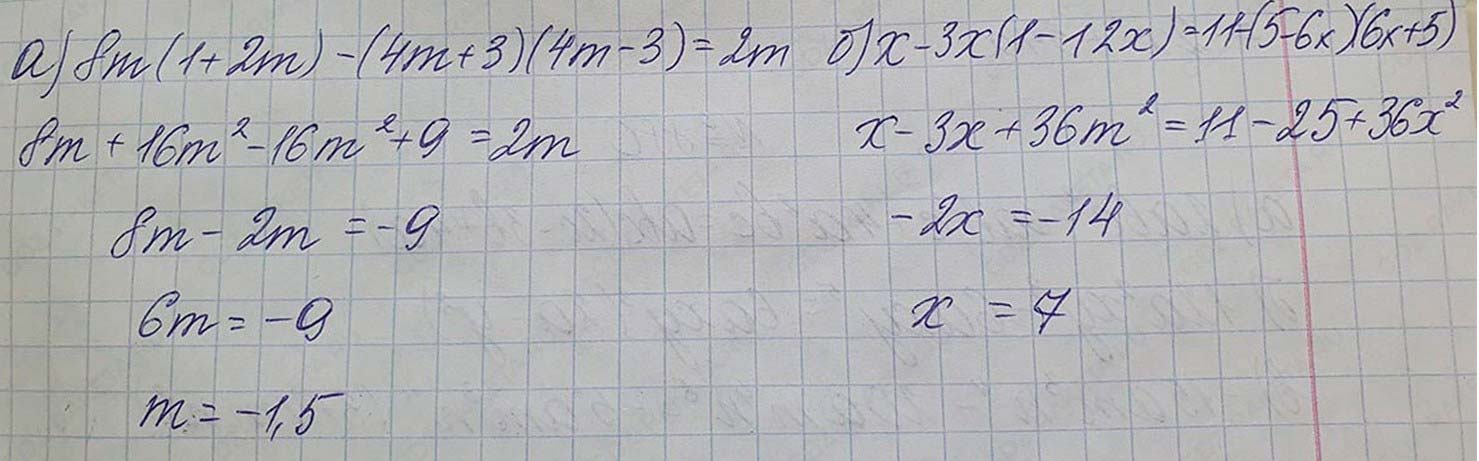 а) 8m(1+2m)-(4m+3)(4m-3)=2m
8m+16m²-16m²+9=2m
8m-2m=-9
6m=-9
m=-1,5
б) x-3x(1-12x)=11-(5-6x)(6x+5)
x-3x+36m²=11-25+36x²
-2x=-14
x=7